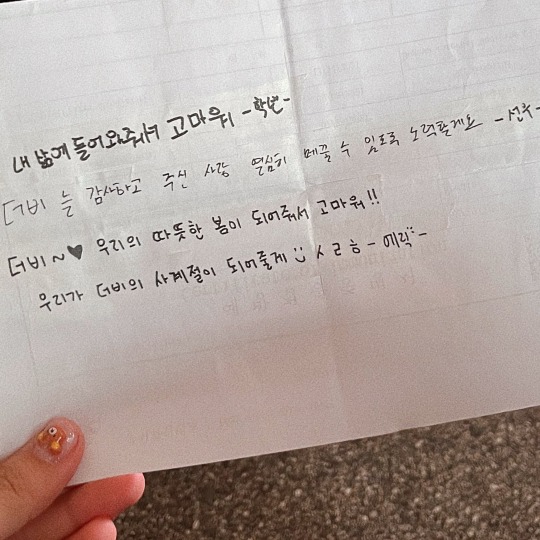 내 밤에 들어와줘서 고마워 -학년-
더비 늘 감사하고 주신 사랑 열심히 메꿀 수 있도록 노력할게요 -선우-
더비~♥ 우리의 따뜻한 봄이 되어줘서 고마워!!
우리가 더비의 사계절이 되어줄게 ㅅㄹㅎ -에릭-